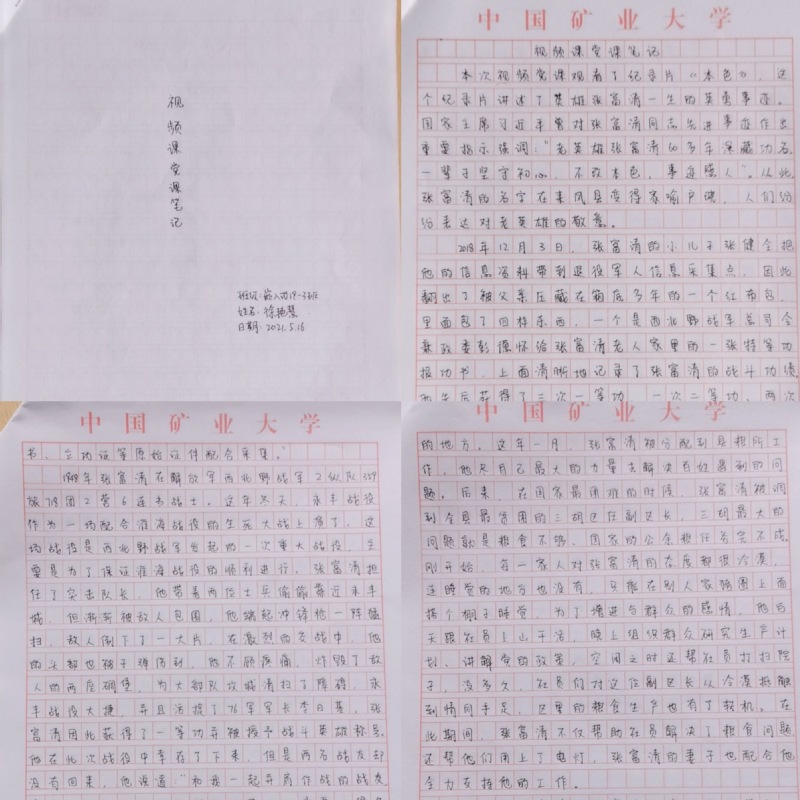 视频课党课笔记
班级:嵌入功19-3班
姓名:徐艳慧
日期:2021.5.16
中国矿业大学
视频课党课笔记
本次视频党课观看了纪录片《本色》,这
个纪录片讲述了英雄张富清一生的英勇事迹。
国家主席习近平曾对张富清同志先进事迹作出
重要指示强调:“老英雄张富清60多年深藏功名,
一辈子坚守初心,不改本色,事迹感人”。从此,
张富清的名字在来凤县变得家喻户晓,人们纷
纷表达对老英雄的敬意。
2018年12月3日,张富清的小儿子张健全把
他的信息资料带到退役军人信息采集点,因此
翻出了被父亲压藏在箱底多年的一个红布包,
里面包了四样东西,一个是西北野战军总司令
兼政委彭德怀给张富清老人家里的一张特等功
报功书,上面清晰地记录了张富清的战斗功绩
而先后获得了三次一等功,一次二等功,两次
中国矿业大学
书、立功证等原始证件配合采集。”
1948年张富清在解放军西北野战军2纵队359
旅718团2营6连当战士。这年冬天,永丰战役
作为一场配合淮海战役的生死大战上演了,这
场战役是西北野战军发起的一次重大战役,主
要是为了保证淮海战役的顺利进行,张富清担
任了突击队长,他带着两位士兵偷偷靠近永丰
城,但渐渐被敌人包围,他端起冲锋枪一阵猛
扫,敌人倒下了一大片,在激烈的交战中,他
的头部也被子弹伤到,他不顾疼痛,炸毁了敌
人的两座碉堡,为大部队攻城清扫了障碍,永
丰战役大捷,并且活捉了76军军长李日基,张
富清因此获得了一等功并被授予战斗英雄称号。
他在此次战役中幸存了下来,但是两名战友却
没有回来,他误道:“和我一起并肩作战的战友
中国矿业大学
的地方。这年一月,张富清被分配到县粮所工
作,他尽自己最大的力量去解决百姓遇到的问
题。后来,在国家最困难的时候,张富清被调
到全县最贫困的三胡区任副区长,三胡最大的
问题就是粮食不够、国家的公余粮任务完不成。
刚开始,每一家人对张富清的态度都很冷漠,
连睡觉的地方也没有,只能在别人家猪圈上面
搭个棚子睡觉,为了增进与群众的感情,他白
天跟社员上山干活,晚上组织群众研究生产计
划、讲解党的政策,空闲之时还帮社员打扫院
子,没多久,社员们对这位副区长从冷漠接触
到情同手足,这里的粮食生产也有了转机,在
此期间,张富清不仅帮助社员解决了粮食问题,
还帮他们用上了电灯,张富清的妻子也配合他
全力支持他的工作。